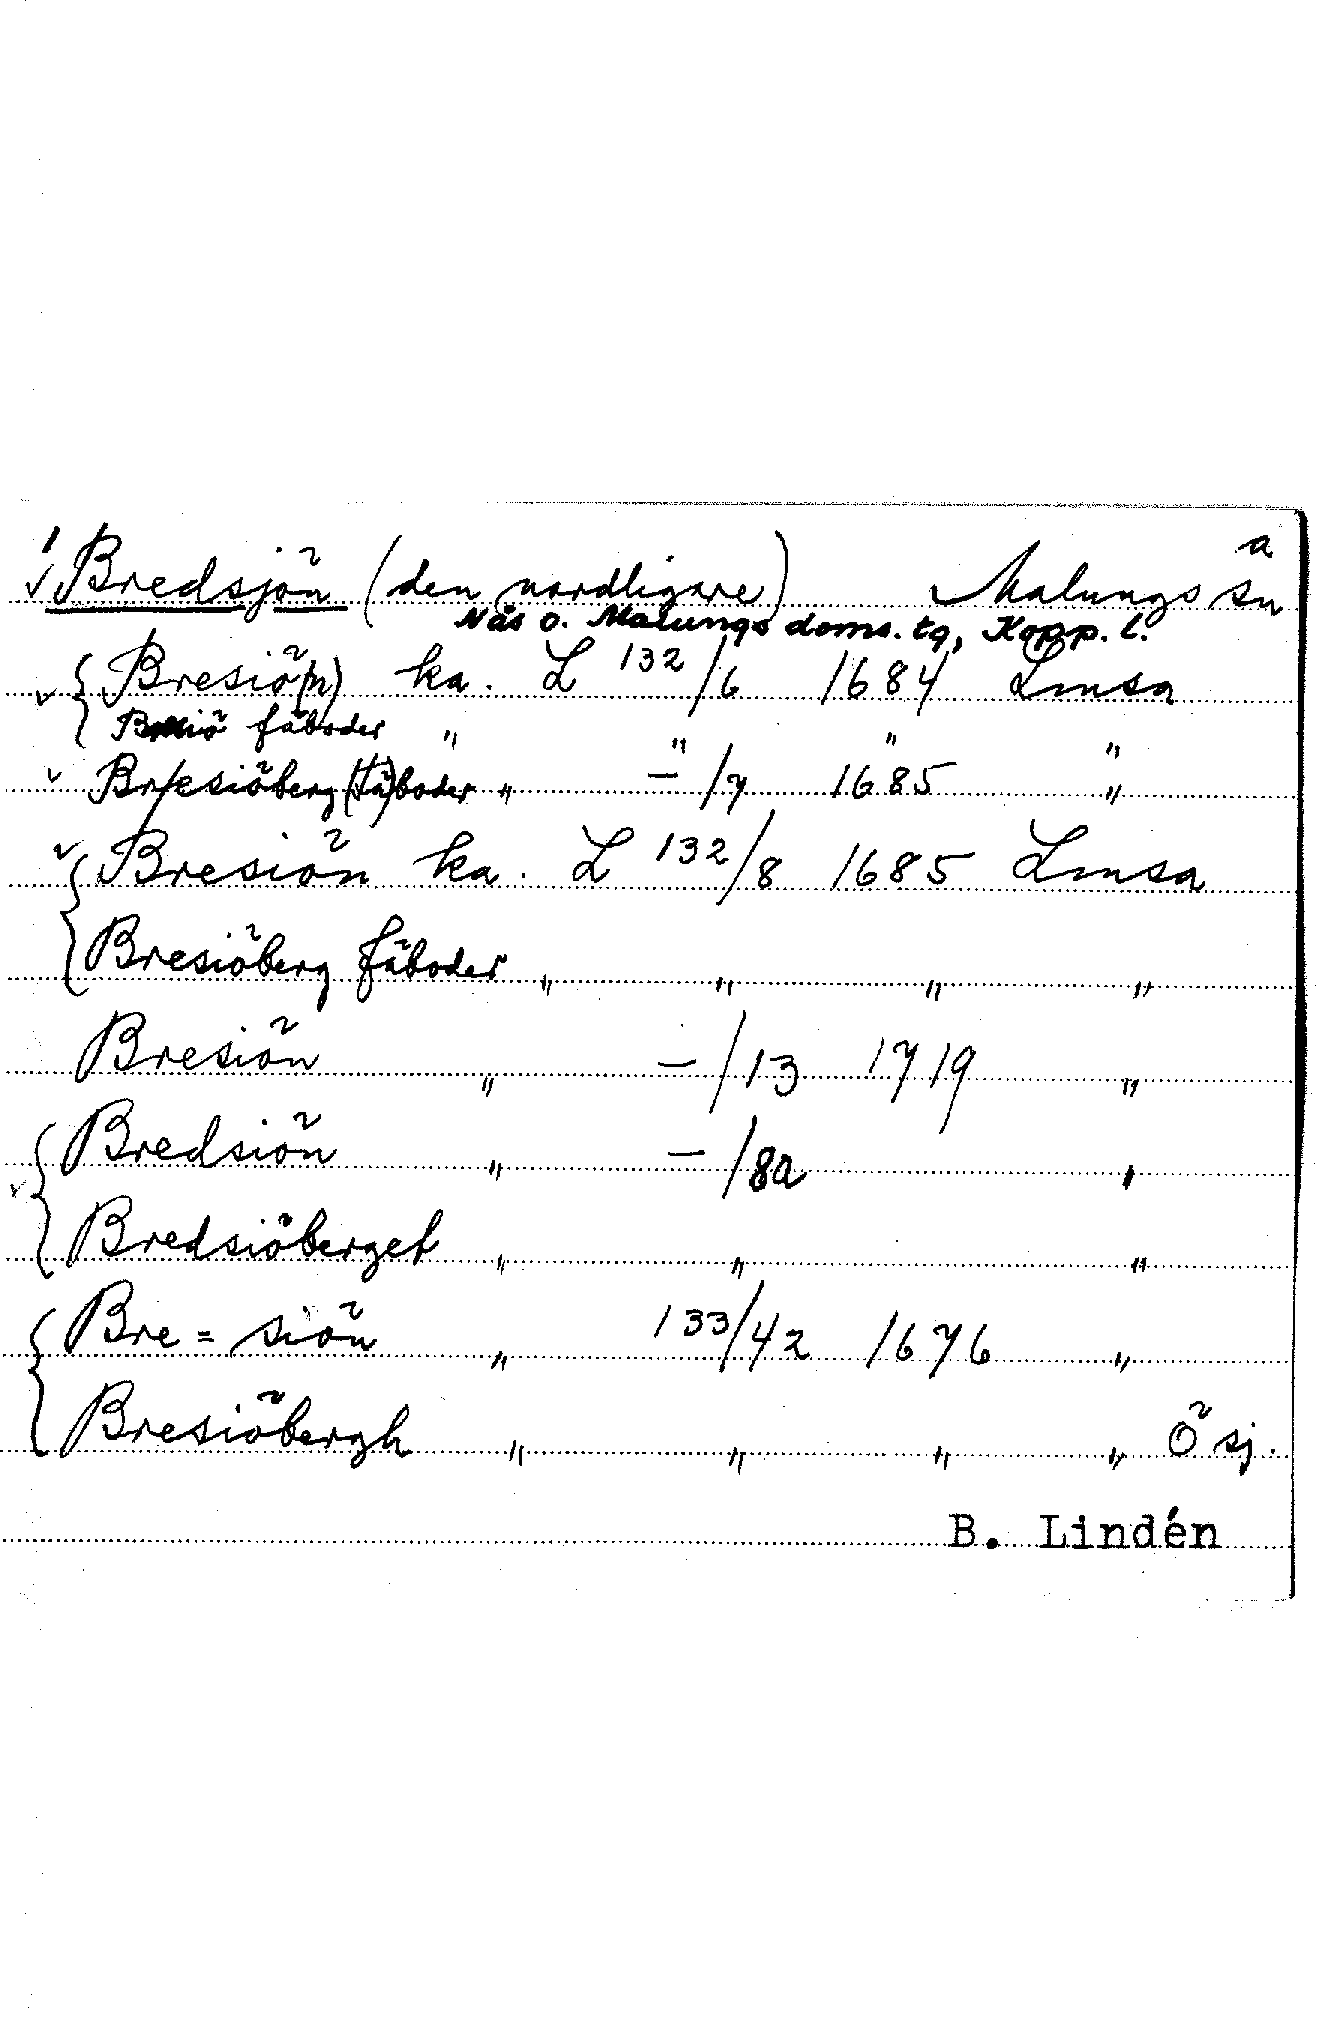 a
1 Bredsjön (den nordligare) Malungs sn
Nås o. Malungs doms. tg, Kopp. l.
Bresiö(n) ka. L 132/6 1684 Lmsa
Bresiö fäboder " " " "
Br/esiöberg (fä)boder " — /7 1685 "
Bresiön ka. L 132/8 1685 Lmsa
Bresiöberg fäboder " " " "
Bresiön " — /13 1719 "
Bredsiön " — /8a "
Bredsiöberget " " "
Bre = siön " 133/42 1676 "
Bresiöbergh " " " " Ö sj.
B. Lindén